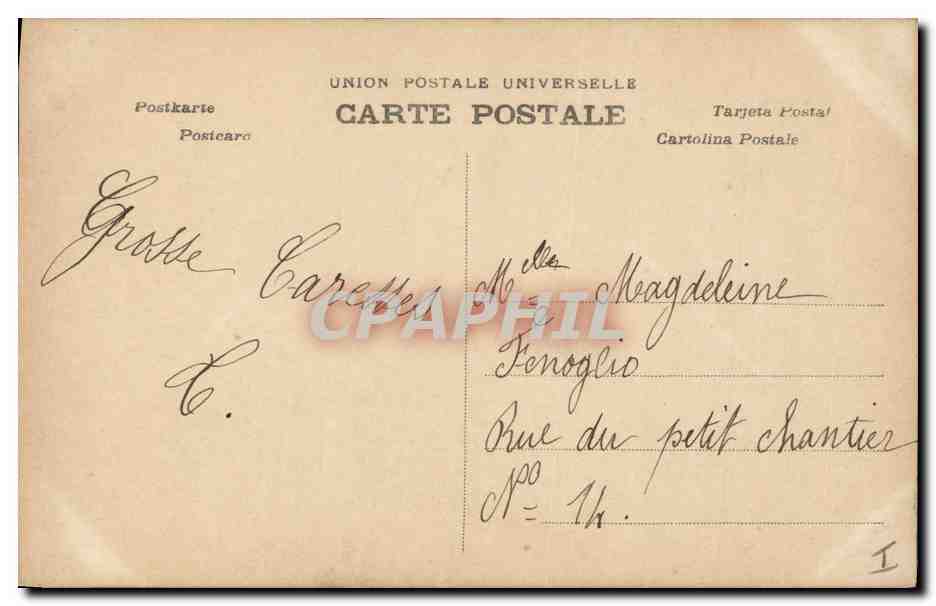 UNION POSTALE UNIVERSELLE
CARTE POSTALE
Postkarte
Postcard
Tarjeta Postal
Cartolina Postale
Grosse
Caresses
C.
Melle Magdeleine
Fenoglio
Rue du petit chantier
No 14.
CPAPHIL
I